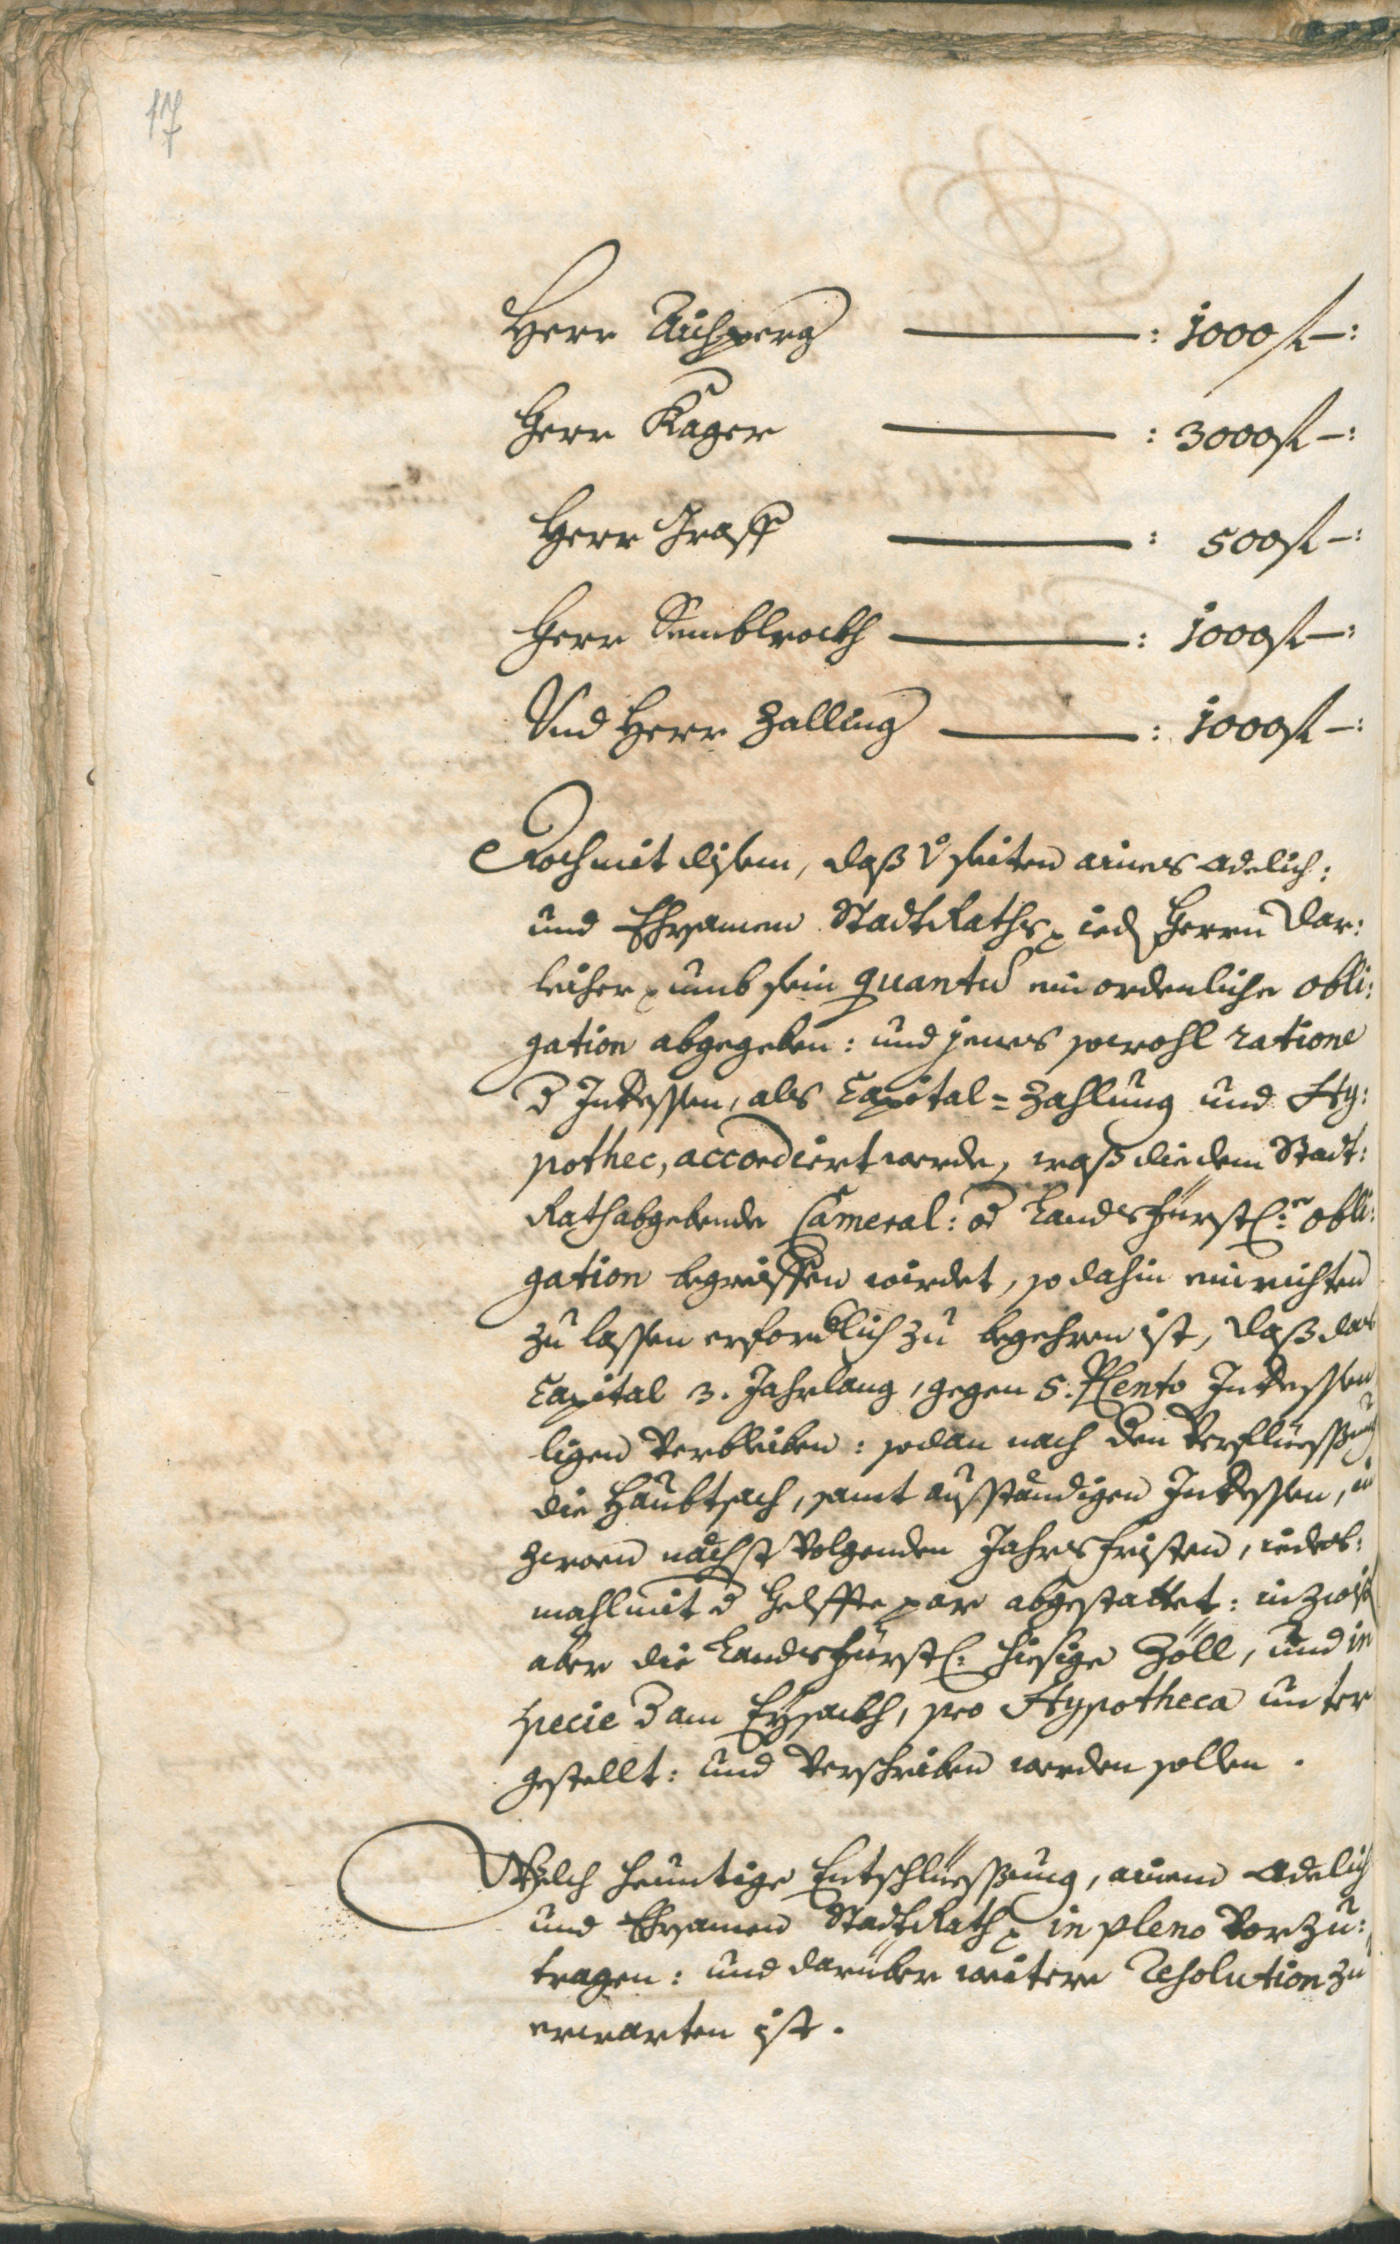 17
Herr Aichperg ——— : 1000 fl —:
Herr Kager ——— : 3000 fl —:
Herr Graff ——— : 500 fl —:
Herr Semblrockh ——— : 1000 fl —:
Vnd Herr Zalling ——— : 1000 fl —:
Doch mit disem, daß v̊ seiten aines Adelich:
und Ehrsamen StadtRaths, ied Herrn Dar:
leiher, umb sein quantu ein ordenliche obli:
gation abgegeben: und jenes sowohl ratione
d Interessen, als Capital=Zahlung und Hy:
pothec, accordiert werde, waß die dem Stadt:
Rath abgebende Cameral: od Landsfürstl: obli:
gation begreiffen wirdet, so dahin einrichten
zu lassen erfordlich zu begehren ist, daß das
Capital 3. Jahr lang, gegen 5. PCento Interessen
ligen verbleiben: sodan nach den Verflüessung
die Haubtsach, samt ausständigen Interessen, in
zween nächst volgenden Jahrsfristen, iedes:
mahl mit d Helffte par abgestattet: inzwisch
aber die Landsfürstl: hiesige Zöll, und in
specie d am Eysackh, pro Hypotheca unter
gestellt: und verschriben werden sollen.
Welch heuntige Entschlüessung, ainem Adelich
und Ehrsamen StadtRath, in pleno vorzu:
tragen: und darüber weitere Resolution zu
erwarten ist.